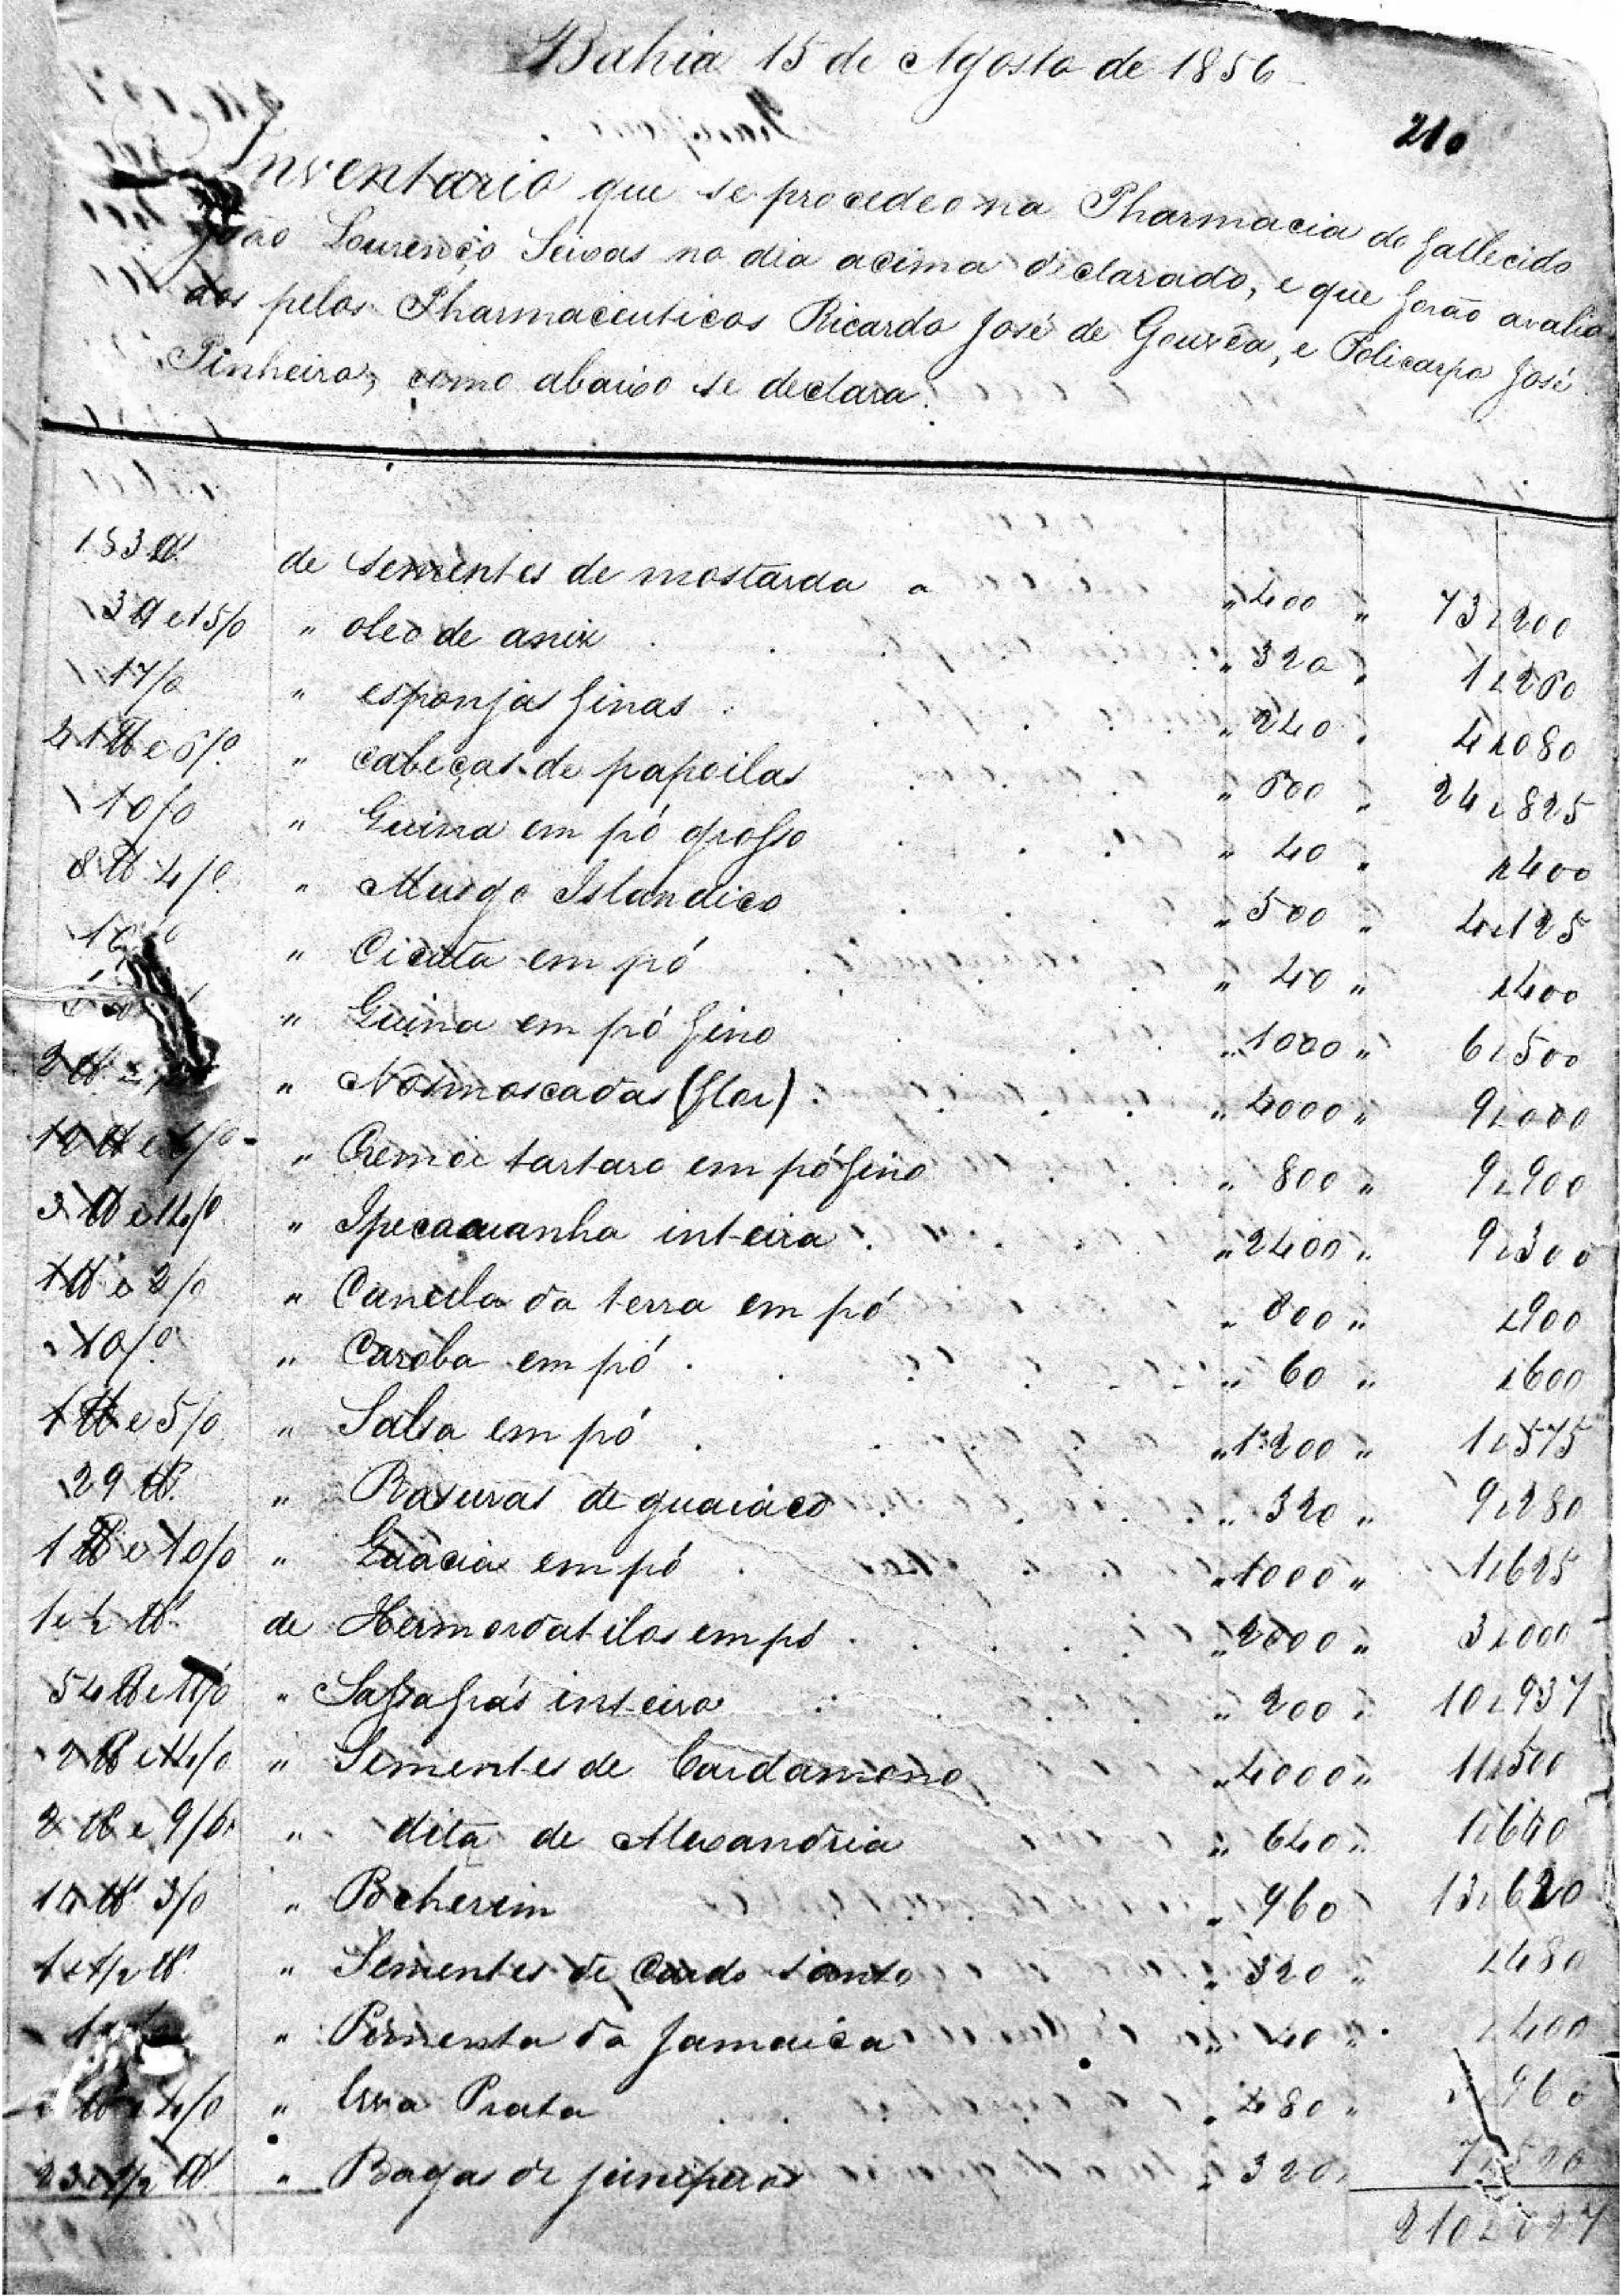 Bahia 15 de Agosto de 1856
210
Inventario que se procedeo na Pharmacia do fallecido
João Lourenço Seixas no dia acima declarado, e que forão avalia
dos pelos Pharmaceuticos Ricardo José de Gouvêa, e Policarpo José
Pinheiro, como abaixo se declara.
183 ℔ de sementes de mostarda a " 400 " 73$200
3 ℔ e 15/0 " oleo de anix " 320 " 1$260
17/0 " esponjas finas " 240 " 4$080
41 ℔ e 6/0 " cabeças de papoilas " 600 " 24$825
10/0 " Quina em pó grosso " 40 " $400
8 ℔ 4/0 " Musgo Islandico " 500 " 4$125
" Cicuta em pó " 40 " $400
" Quina em pó fino " 1000 " 6$500
2 ℔ " Nósmoscadas (flor) " 4000 " 9$000
12 ℔ e /0 " Cremor tartaro em pó fino " 800 " 9$900
3 ℔ e 14/0 " Ipecacuanha inteira " 2400 " 9$300
1 ℔ e 2/0 " Canella da terra em pó " 800 " $900
10/0 " Caroba em pó " 60 " $600
1 ℔ e 5/0 " Salsa em pó " 1200 " 1$575
29 ℔ " Rasuras de guaiaco " 320 " 9$280
1 ℔ e 10/0 " Quacia em pó " 1000 " 1$625
1 e ½ ℔ de Hermodatilos em pó " 2000 " 3$000
54 ℔ e 11/0 " Sassafrás inteiro " 200 " 10$937
2 ℔ e 14/0 " Sementes de Cardamomo " 4000 " 11$500
2 ℔ e 9/0 " dita de Alexandria " 640 " 1$640
14 ℔ 3/0 " Becherim " 960 13$620
1 e 1/2 ℔ " Sementes de Cardo santo " 320 " $480
" Pimenta da Jamaica " 40 " $400
℔ e 4/0 " Erva Prata " 480 " $960
23 e 1/2 ℔ " Bagas de juniperos " 320 " 7$520